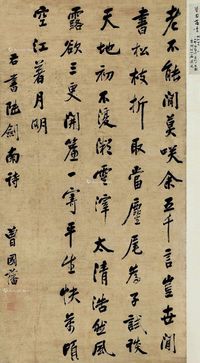 老不能閒莫咲余五千言豈世閒
書松枝折取當麈尾爲子試談
天地初不復微雲滓太清浩然風
露欲三更開簾一寄平生快萬頃
空江著月明
右書陸劍南詩 曾國藩